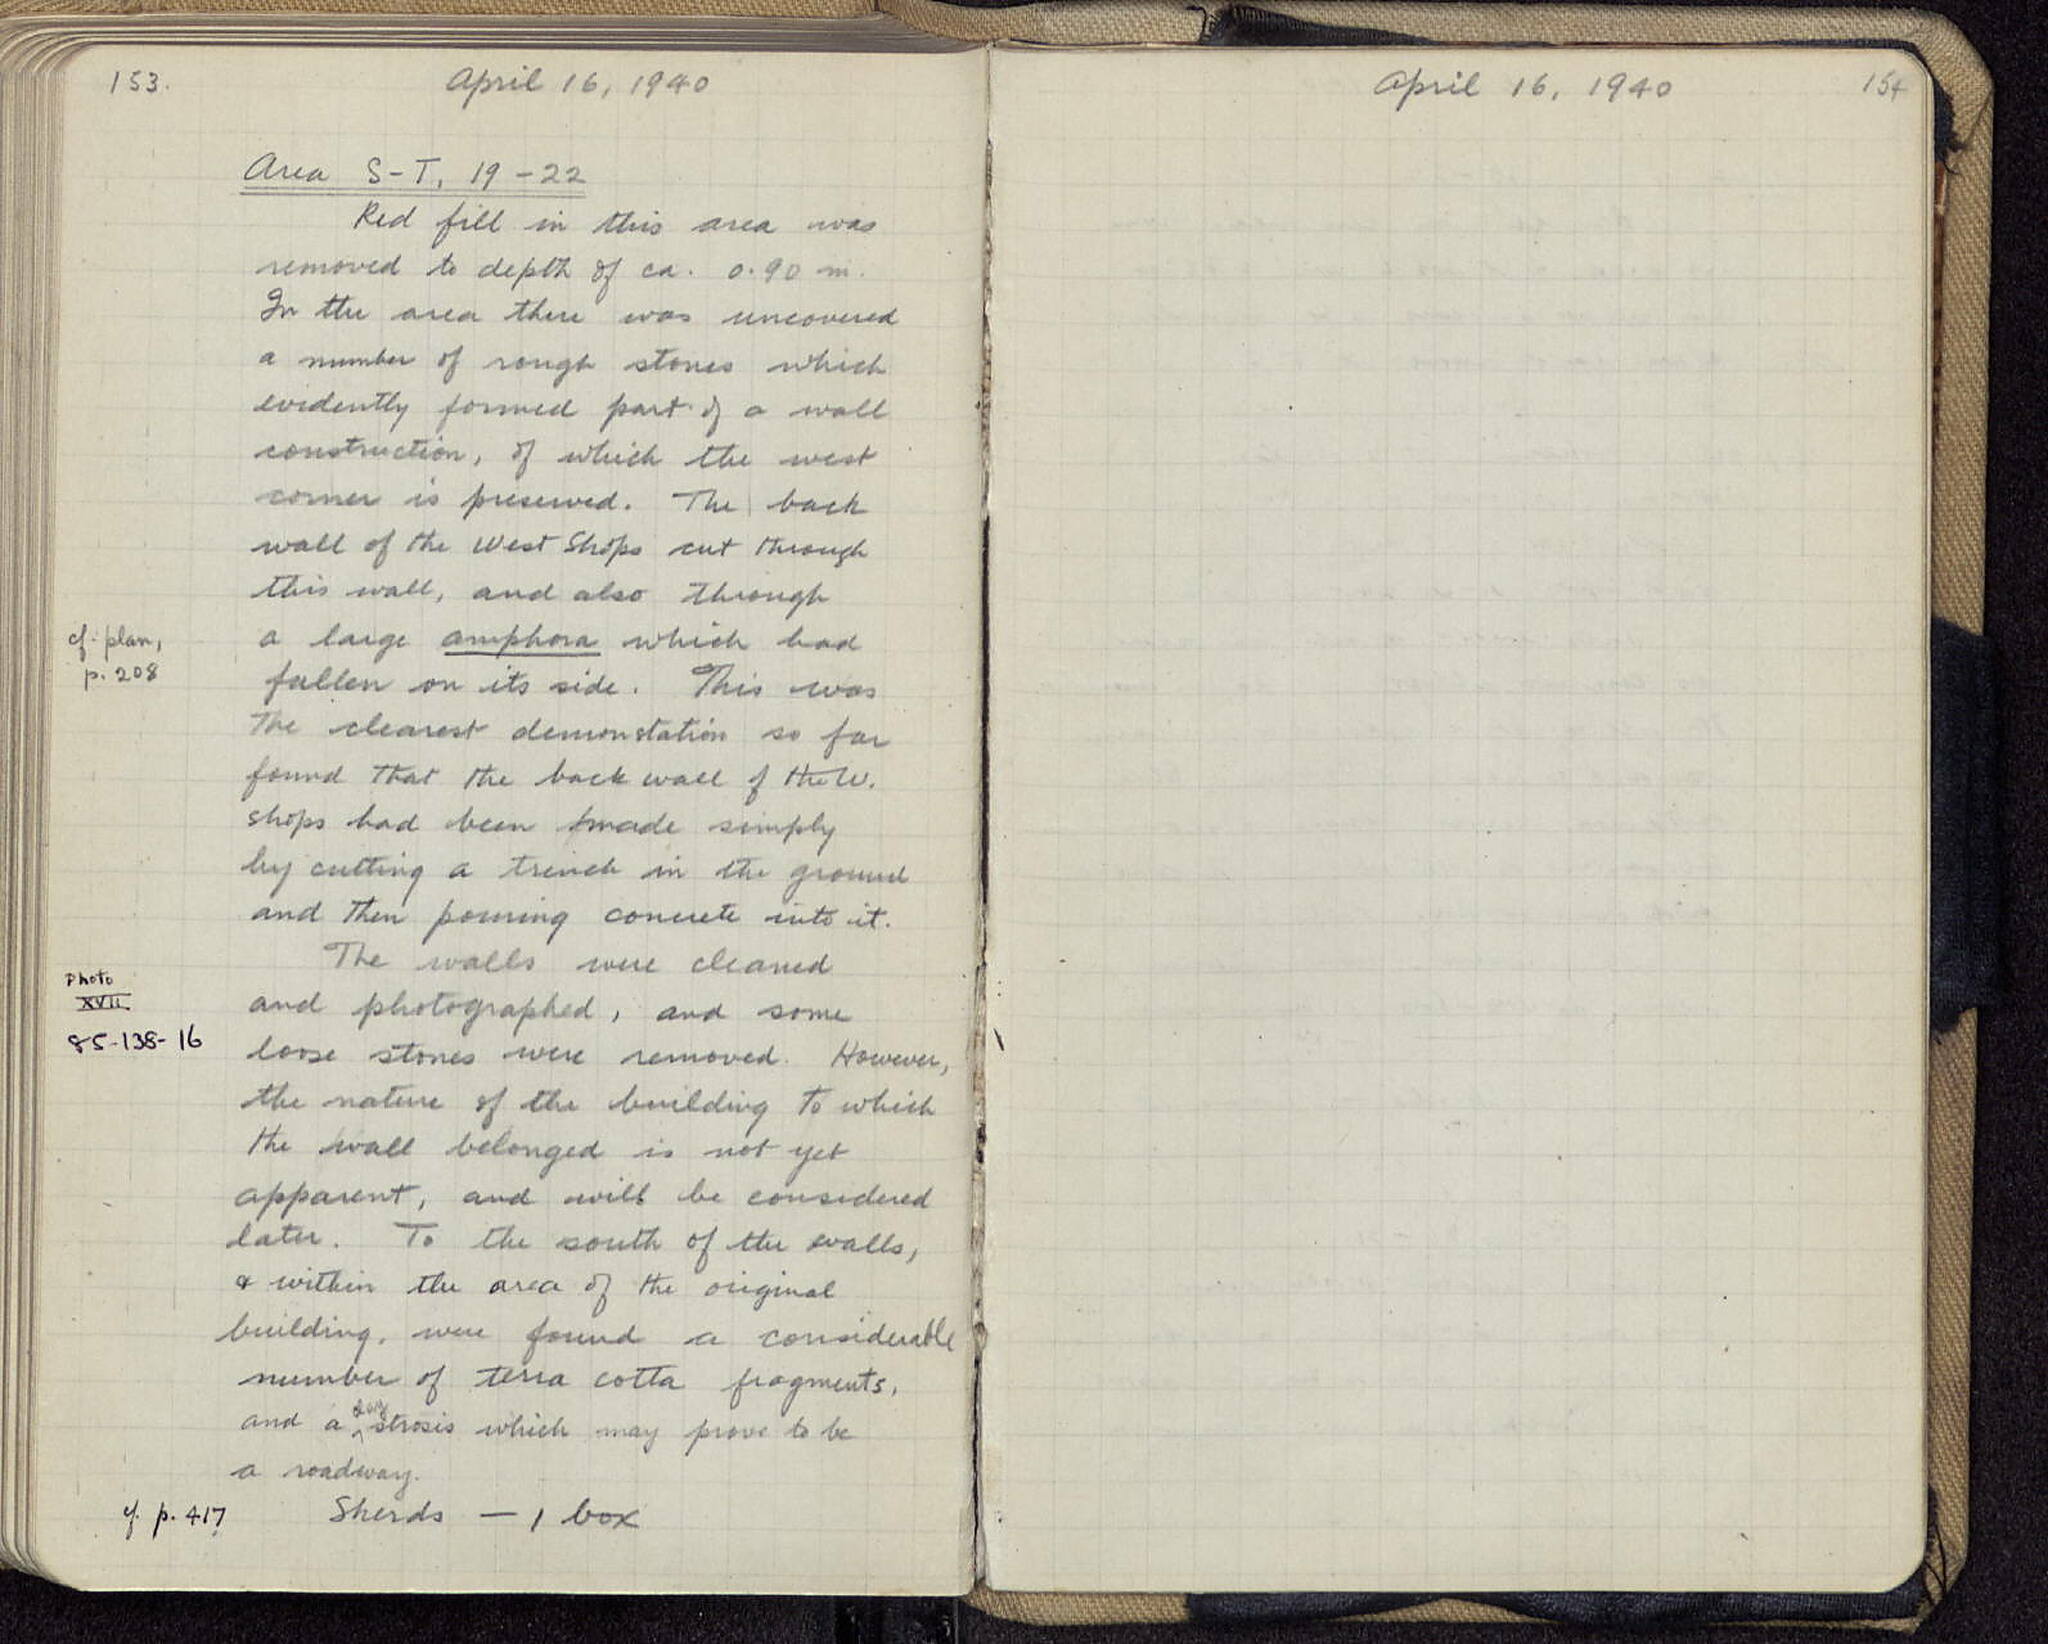 153.
April 16, 1940
Area S-T, 19-22
Red fill in this area was
removed to depth of ca. 0.90 m.
In the area there was uncovered
a number of rough stones which
evidently formed part of a wall
construction, of which the west
corner is preserved. The back
wall of the West Shops cut through
this wall, and also through
cf. plan,
p. 208
a large amphora which had
fallen on its side. This was
the clearest demonstation so far
found that the back wall of the W.
shops had been made simply
by cutting a trench in the ground
and then pouring concrete into it.
The walls were cleaned
Photo
XVII
85-138-16
and photographed, and some
loose stones were removed. However,
the nature of the building to which
the wall belonged is not yet
apparent, and will be considered
later. To the south of the walls,
& within the area of the original
building, were found a considerable
number of terra cotta fragments,
and a clay strosis which may prove to be
a roadway.
cf. p. 417
Sherds — 1 box
April 16, 1940
154